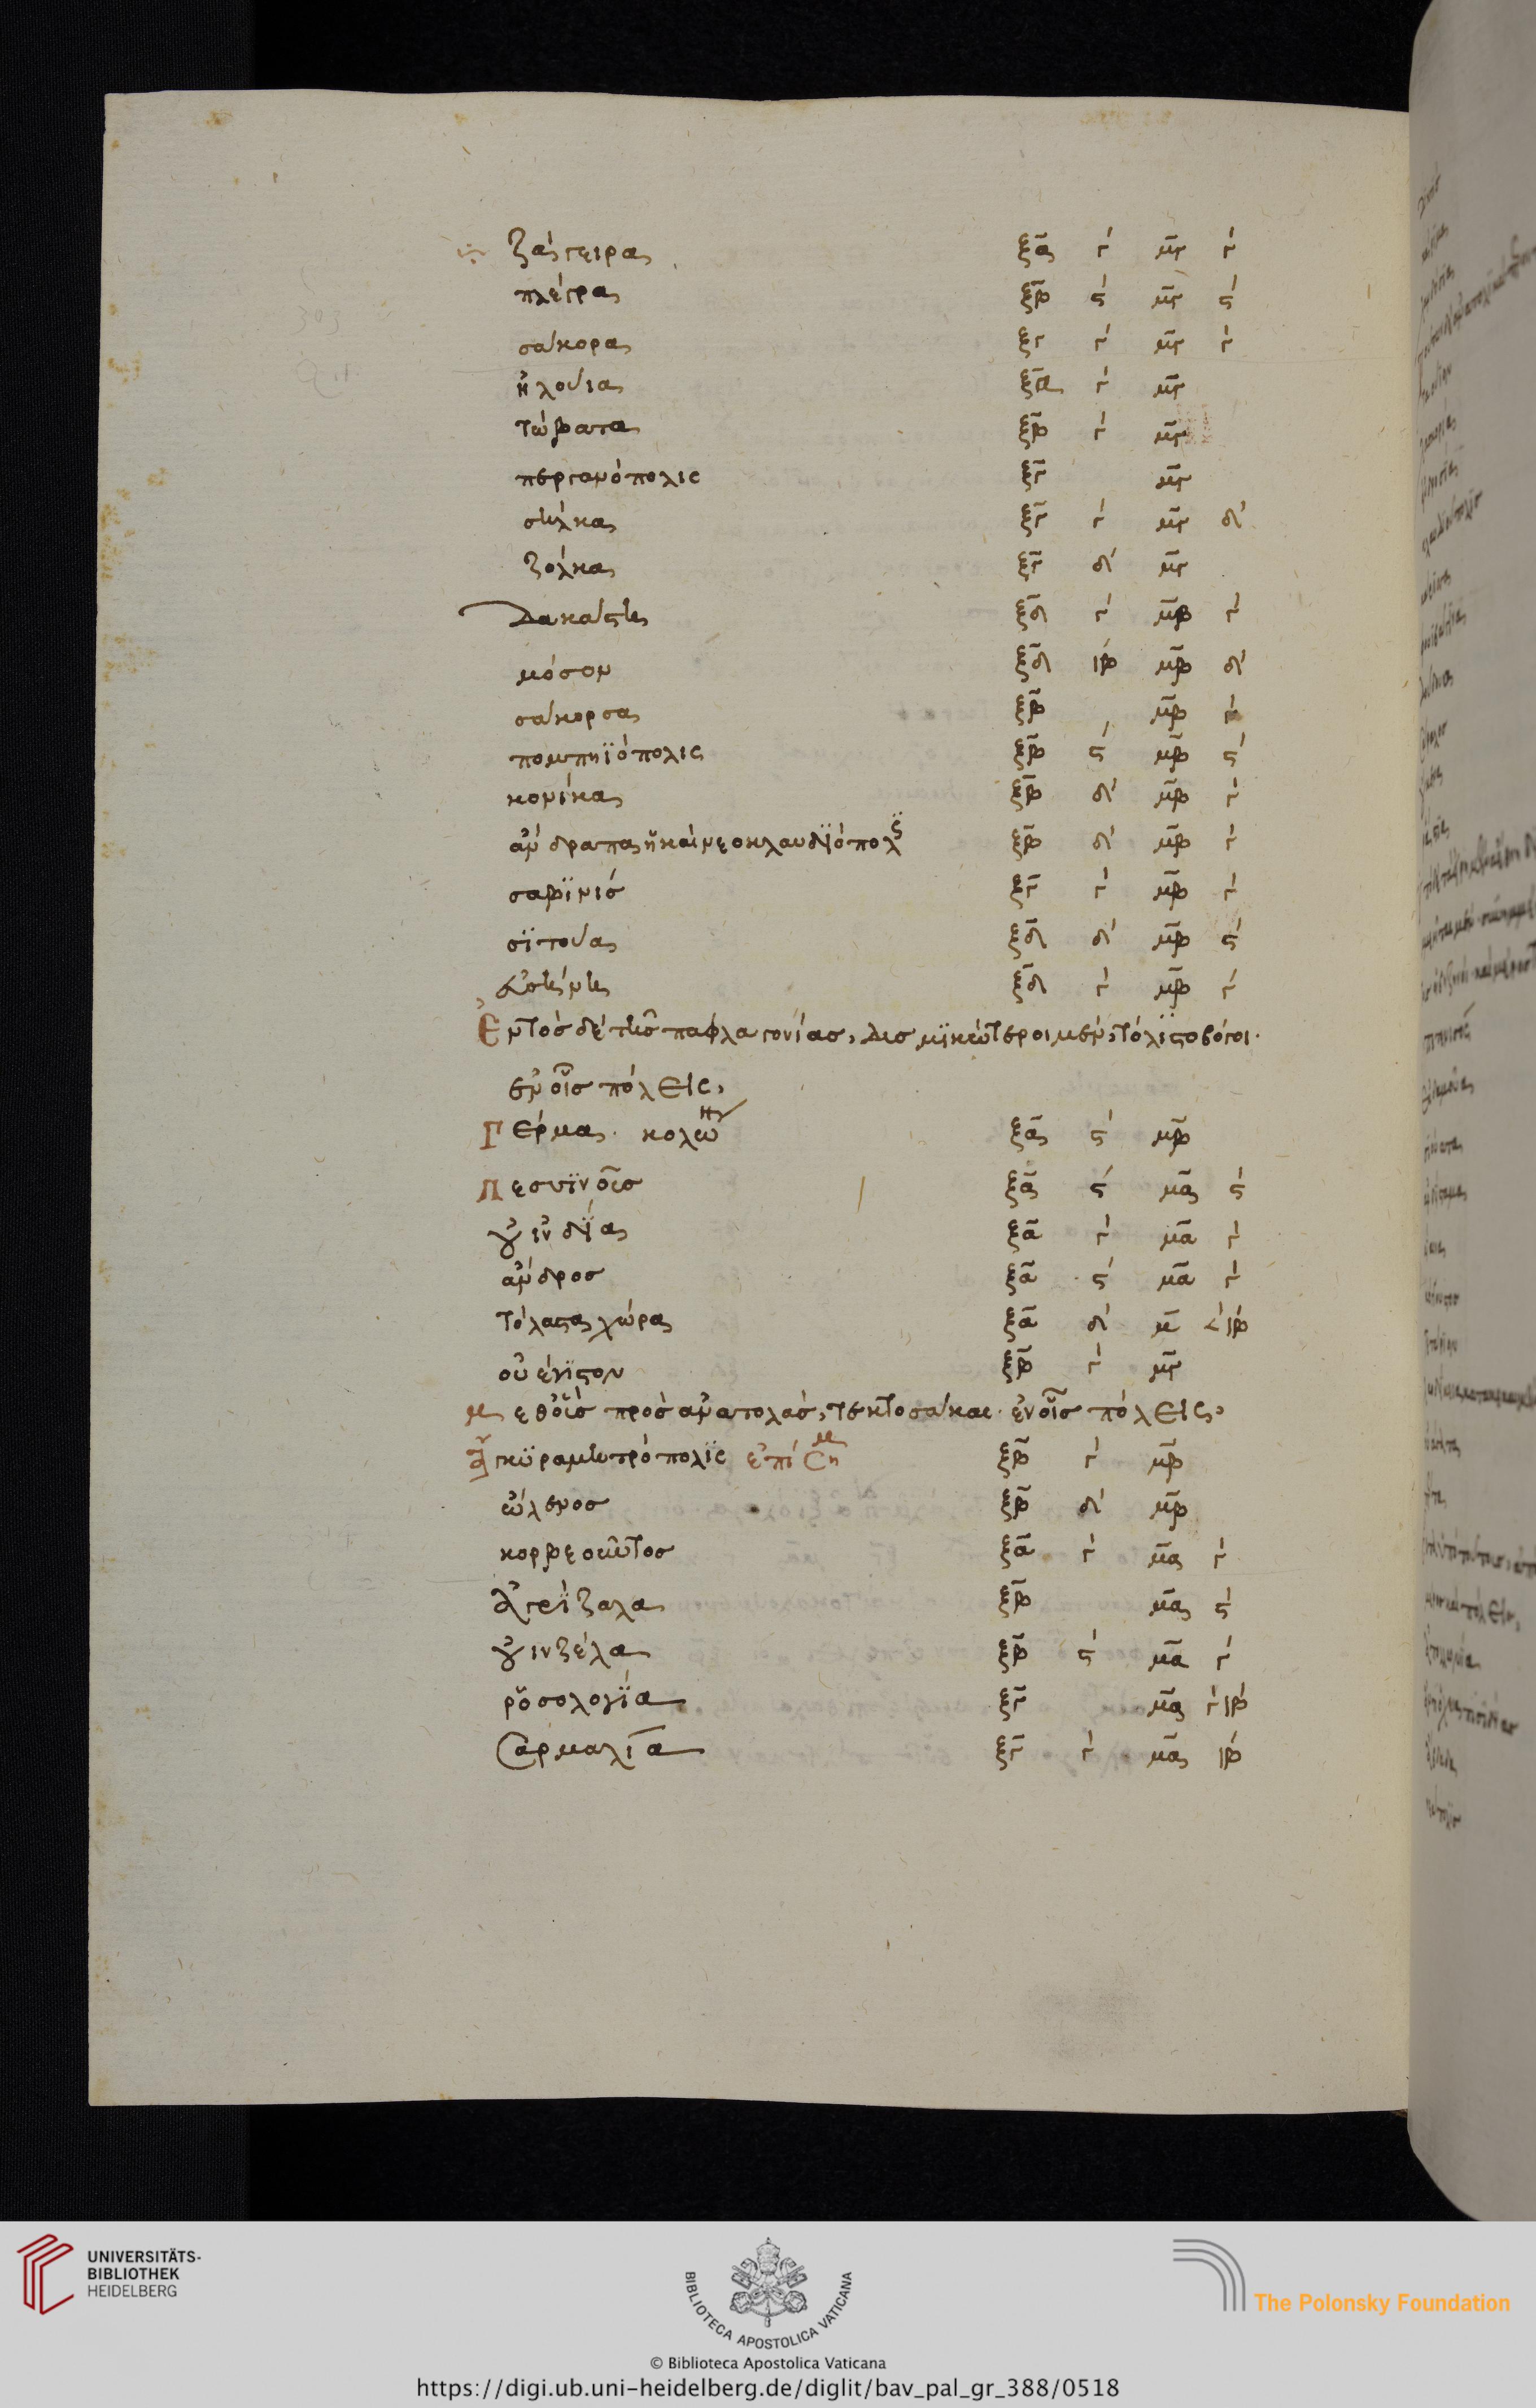 ζάγειρα ξα γʹ μγ γʹ
πλέγρα ξβ ϛʹ μγ ϛʹ
σάκορα ξγ γʹ μγ γʹ
ἠλούια ξα γʹ μγ
τώβατα ξβ γʹ μγ
περγαμόπολις ξγ μγ
στήλκα ξγ γʹ μγ δʹ
ζολκα ξγ δʹ μγ
Δακάστη ξδ γʹ μβ γʹ
μόσον ξδ ιβʹ μβ δʹ
σάκορσα ξβ μβ γʹ
πομπηϊόπολις ξβ ϛʹ μβ ϛʹ
κονίκα ξβ δʹ μβ γʹ
ἀνδραπα ἢ καὶ νεοκλαυδϊόπολ ξβ δʹ μβ γʹ
σαβϊνισ ξγ γʹ μβ γʹ
σϊτούα ξδ δʹ μβ ϛʹ
ξδ γʹ μβ γʹ
Ἐντὸσ δὲ τῆσ παφλαγονίασ, τόλϊστοβόγοι.
ἐν οἷσ πόλεις,
Γέρμα κολω ξα ϛʹ μβ
Πεσυϊνοῦσ ξα ϛʹ μα ϛʹ
οὐινδΐα ξα γʹ μα γʹ
ἄνδροσ ξα ϛʹ μα γʹ
τόλαστα χώρα ξα δʹ μ 𐅵ʹιβʹ
οὐένϊστον ξβ γʹ μγ
μεθ οὓσ πρὸσ ἀνατολὰσ, τεκτοσάκαι. ἐν οἷσ πόλεις,
ἄγκϋρα μητρόπολϊς ἐπίση ξβ γʹ μβ
ὤλενοσ ξβ δʹ μβ
κορβεοῦντοσ ξα γʹ μα γʹ
ἀγρΐζαλα ξβ μα ϛʹ
οὐινζέλα ξβ ϛʹ μα γʹ
ῥοσολογΐα ξγ μα γʹιβʹ
Σαρμαλία ξγ γʹ μα ιβʹ
UNIVERSITÄTS-
BIBLIOTHEK
HEIDELBERG
BIBLIOTECA APOSTOLICA VATICANA
The Polonsky Foundation
© Biblioteca Apostolica Vaticana
https://digi.ub.uni-heidelberg.de/diglit/bav_pal_gr_388/0518